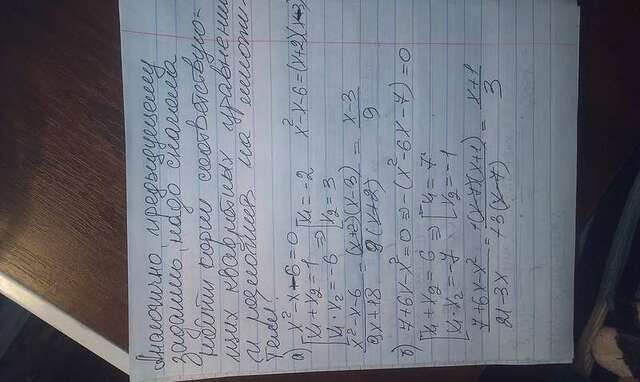 Аналогично предыдущему
заданию, надо сначала
найти корни соответствую-
щих квадратных уравнений
и разложив на множи-
тели:
а) x²-x-6=0
[x₁+x₂=1 ⇒ [x₁=-2 x²-x-6=(x+2)(x-3)
[x₁·x₂=-6 [x₂=3
x²-x-6/9x+18 = (x+2)(x-3)/9(x+2) = x-3/9
б) 7+6x-x²=0 ⇒ -(x²-6x-7)=0
[x₁+x₂=6 ⇒ [x₁=7
[x₁·x₂=-7 [x₂=-1
7+6x-x²/21-3x = -(x-7)(x+1)/-3(x-7) = x+1/3